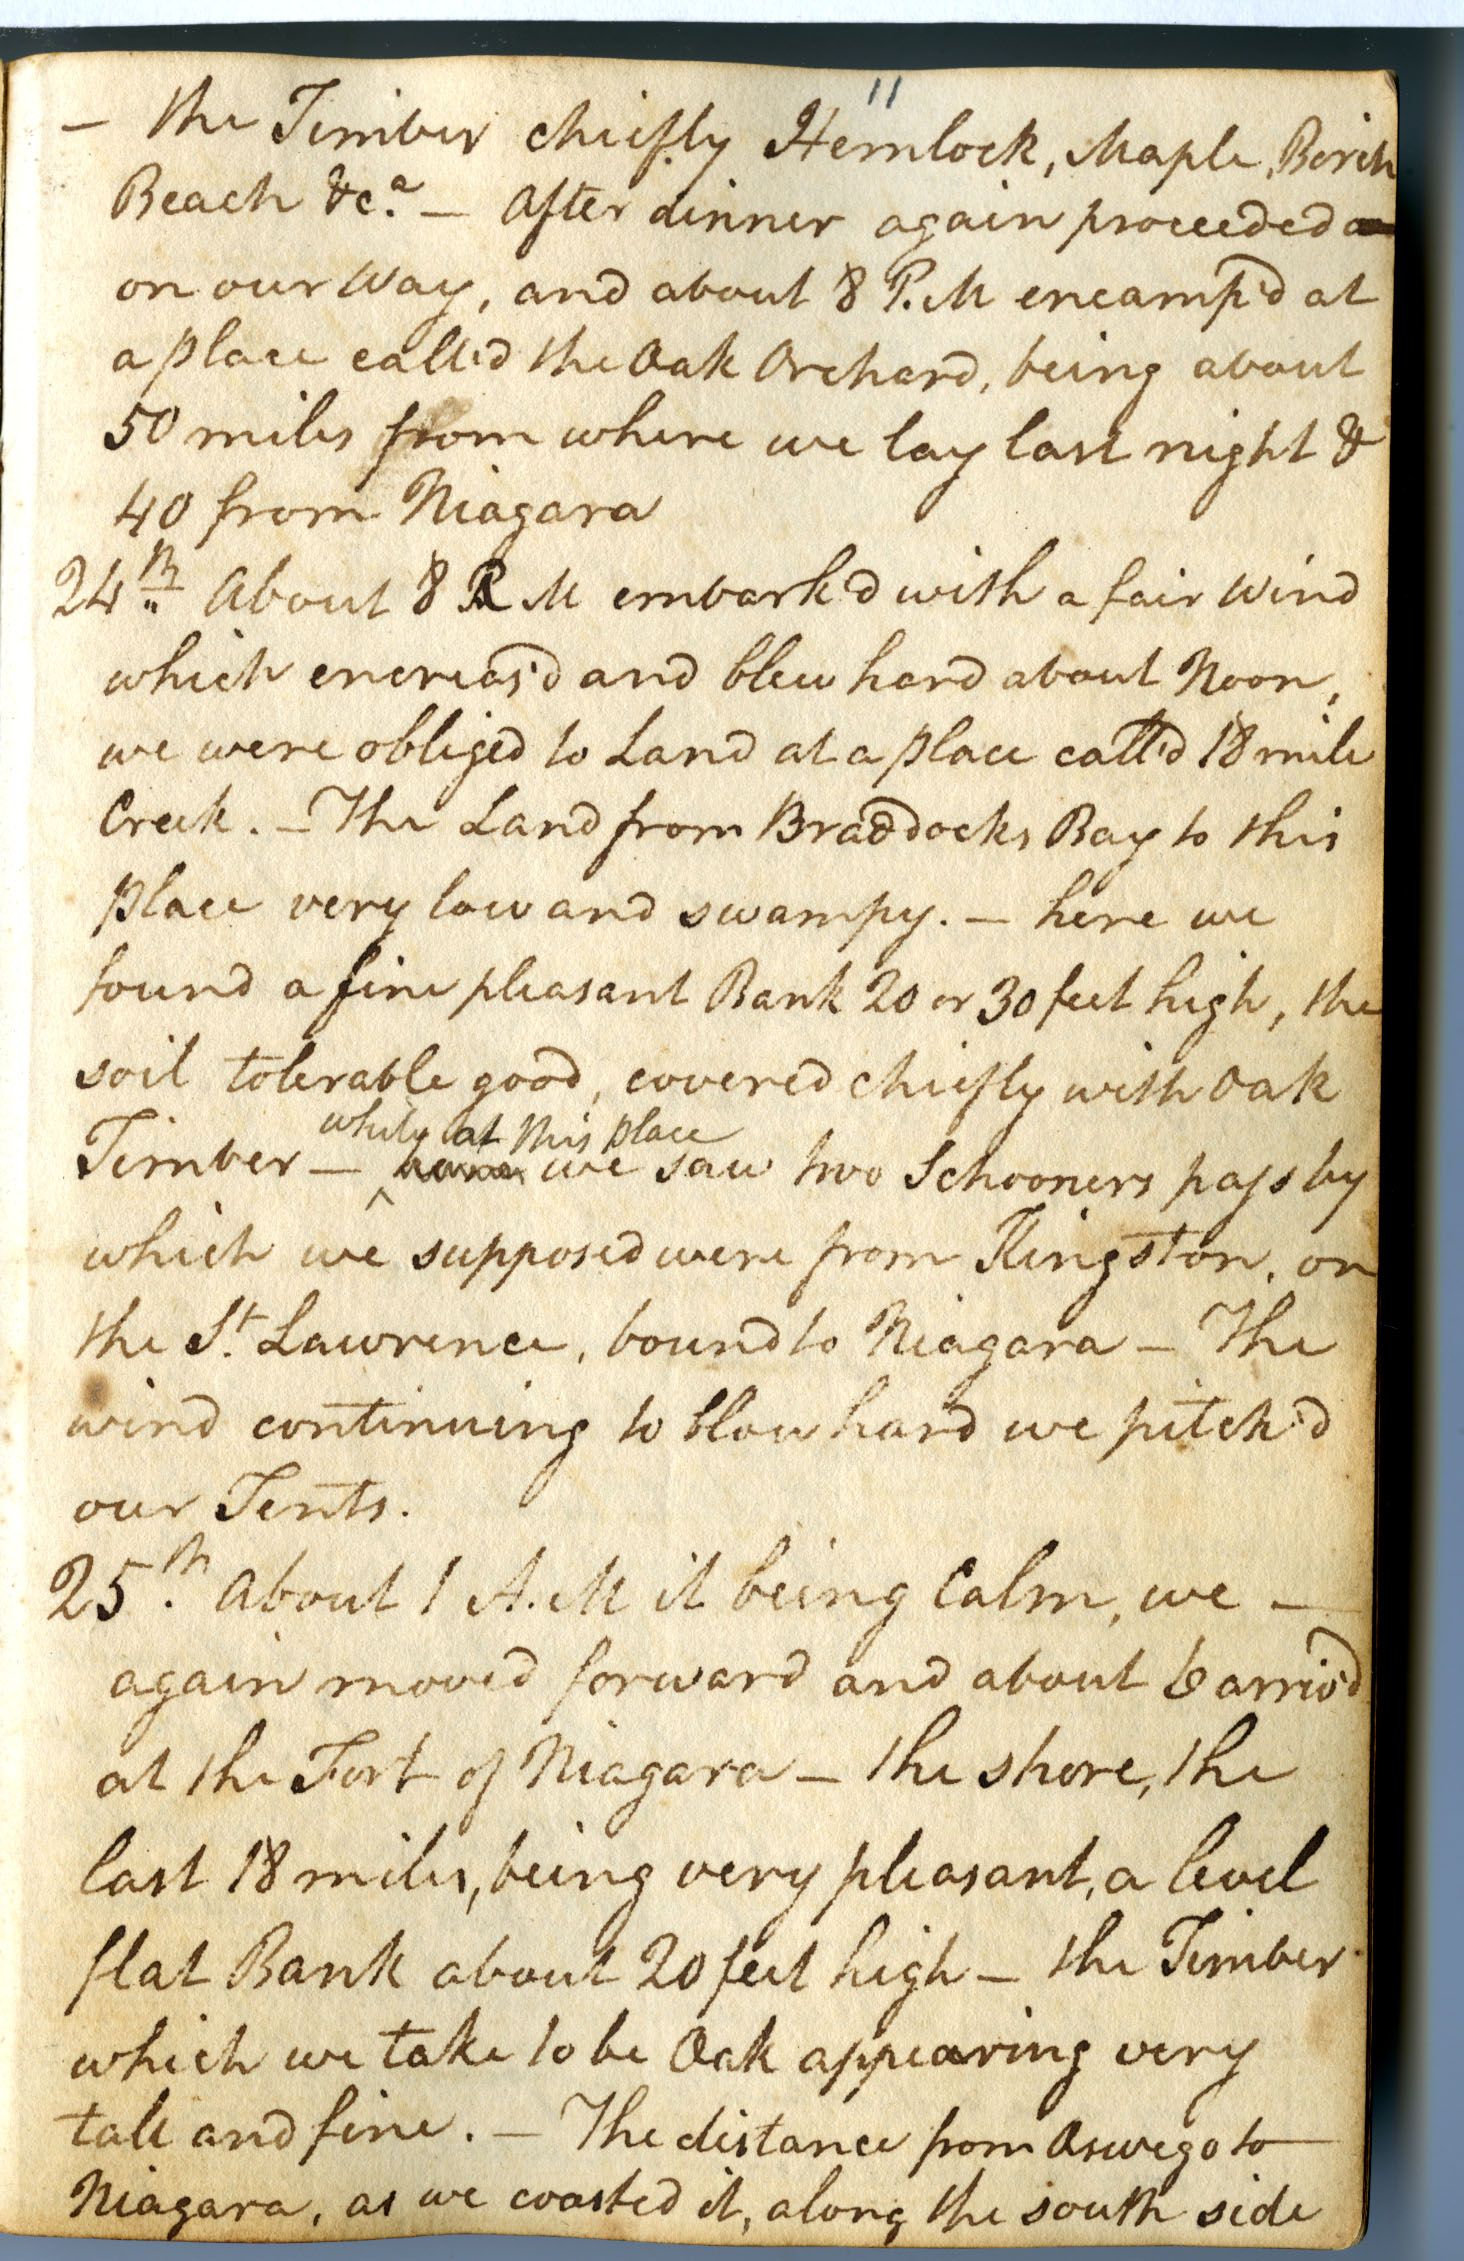 11
— the Timber chiefly Hemlock, Maple, Birch
Beach &c.a — After dinner again proceeded
on our way, and about 8 P.M encamp'd at
a place call'd the Oak Orchard, being about
50 miles from where we lay last night &
40 from Niagara
24th About 8 A M embark'd with a fair wind
which encreas'd and blew hard about Noon,
we were obliged to Land at a place call'd 18 mile
Creek. — The Land from Braddocks Bay to this
place very low and swampy. — here we
found a fine pleasant Bank 20 or 30 feet high, the
soil tolerable good, covered chiefly with Oak
while at this place
Timber — ^ we saw two Schooners pass by
which we supposed were from Kingston, on
the St. Lawrence, bound to Niagara — The
wind continuing to blow hard we pitch'd
our Tents.
25th. About 1 A.M it being Calm, we —
again moved forward and about 6 arriv'd
at the Fort of Niagara — the shore, the
last 18 miles, being very pleasant, a level
flat Bank about 20 feet high — the Timber
which we take to be Oak appearing very
tall and fine. — The distance from Oswego to
Niagara, as we coasted it, along the south side